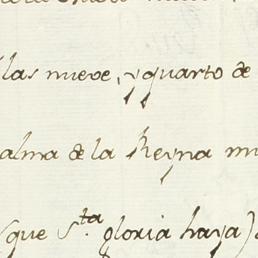 las nueve, y quarto de
alma de la Reyna
(que S.ta gloria haya)